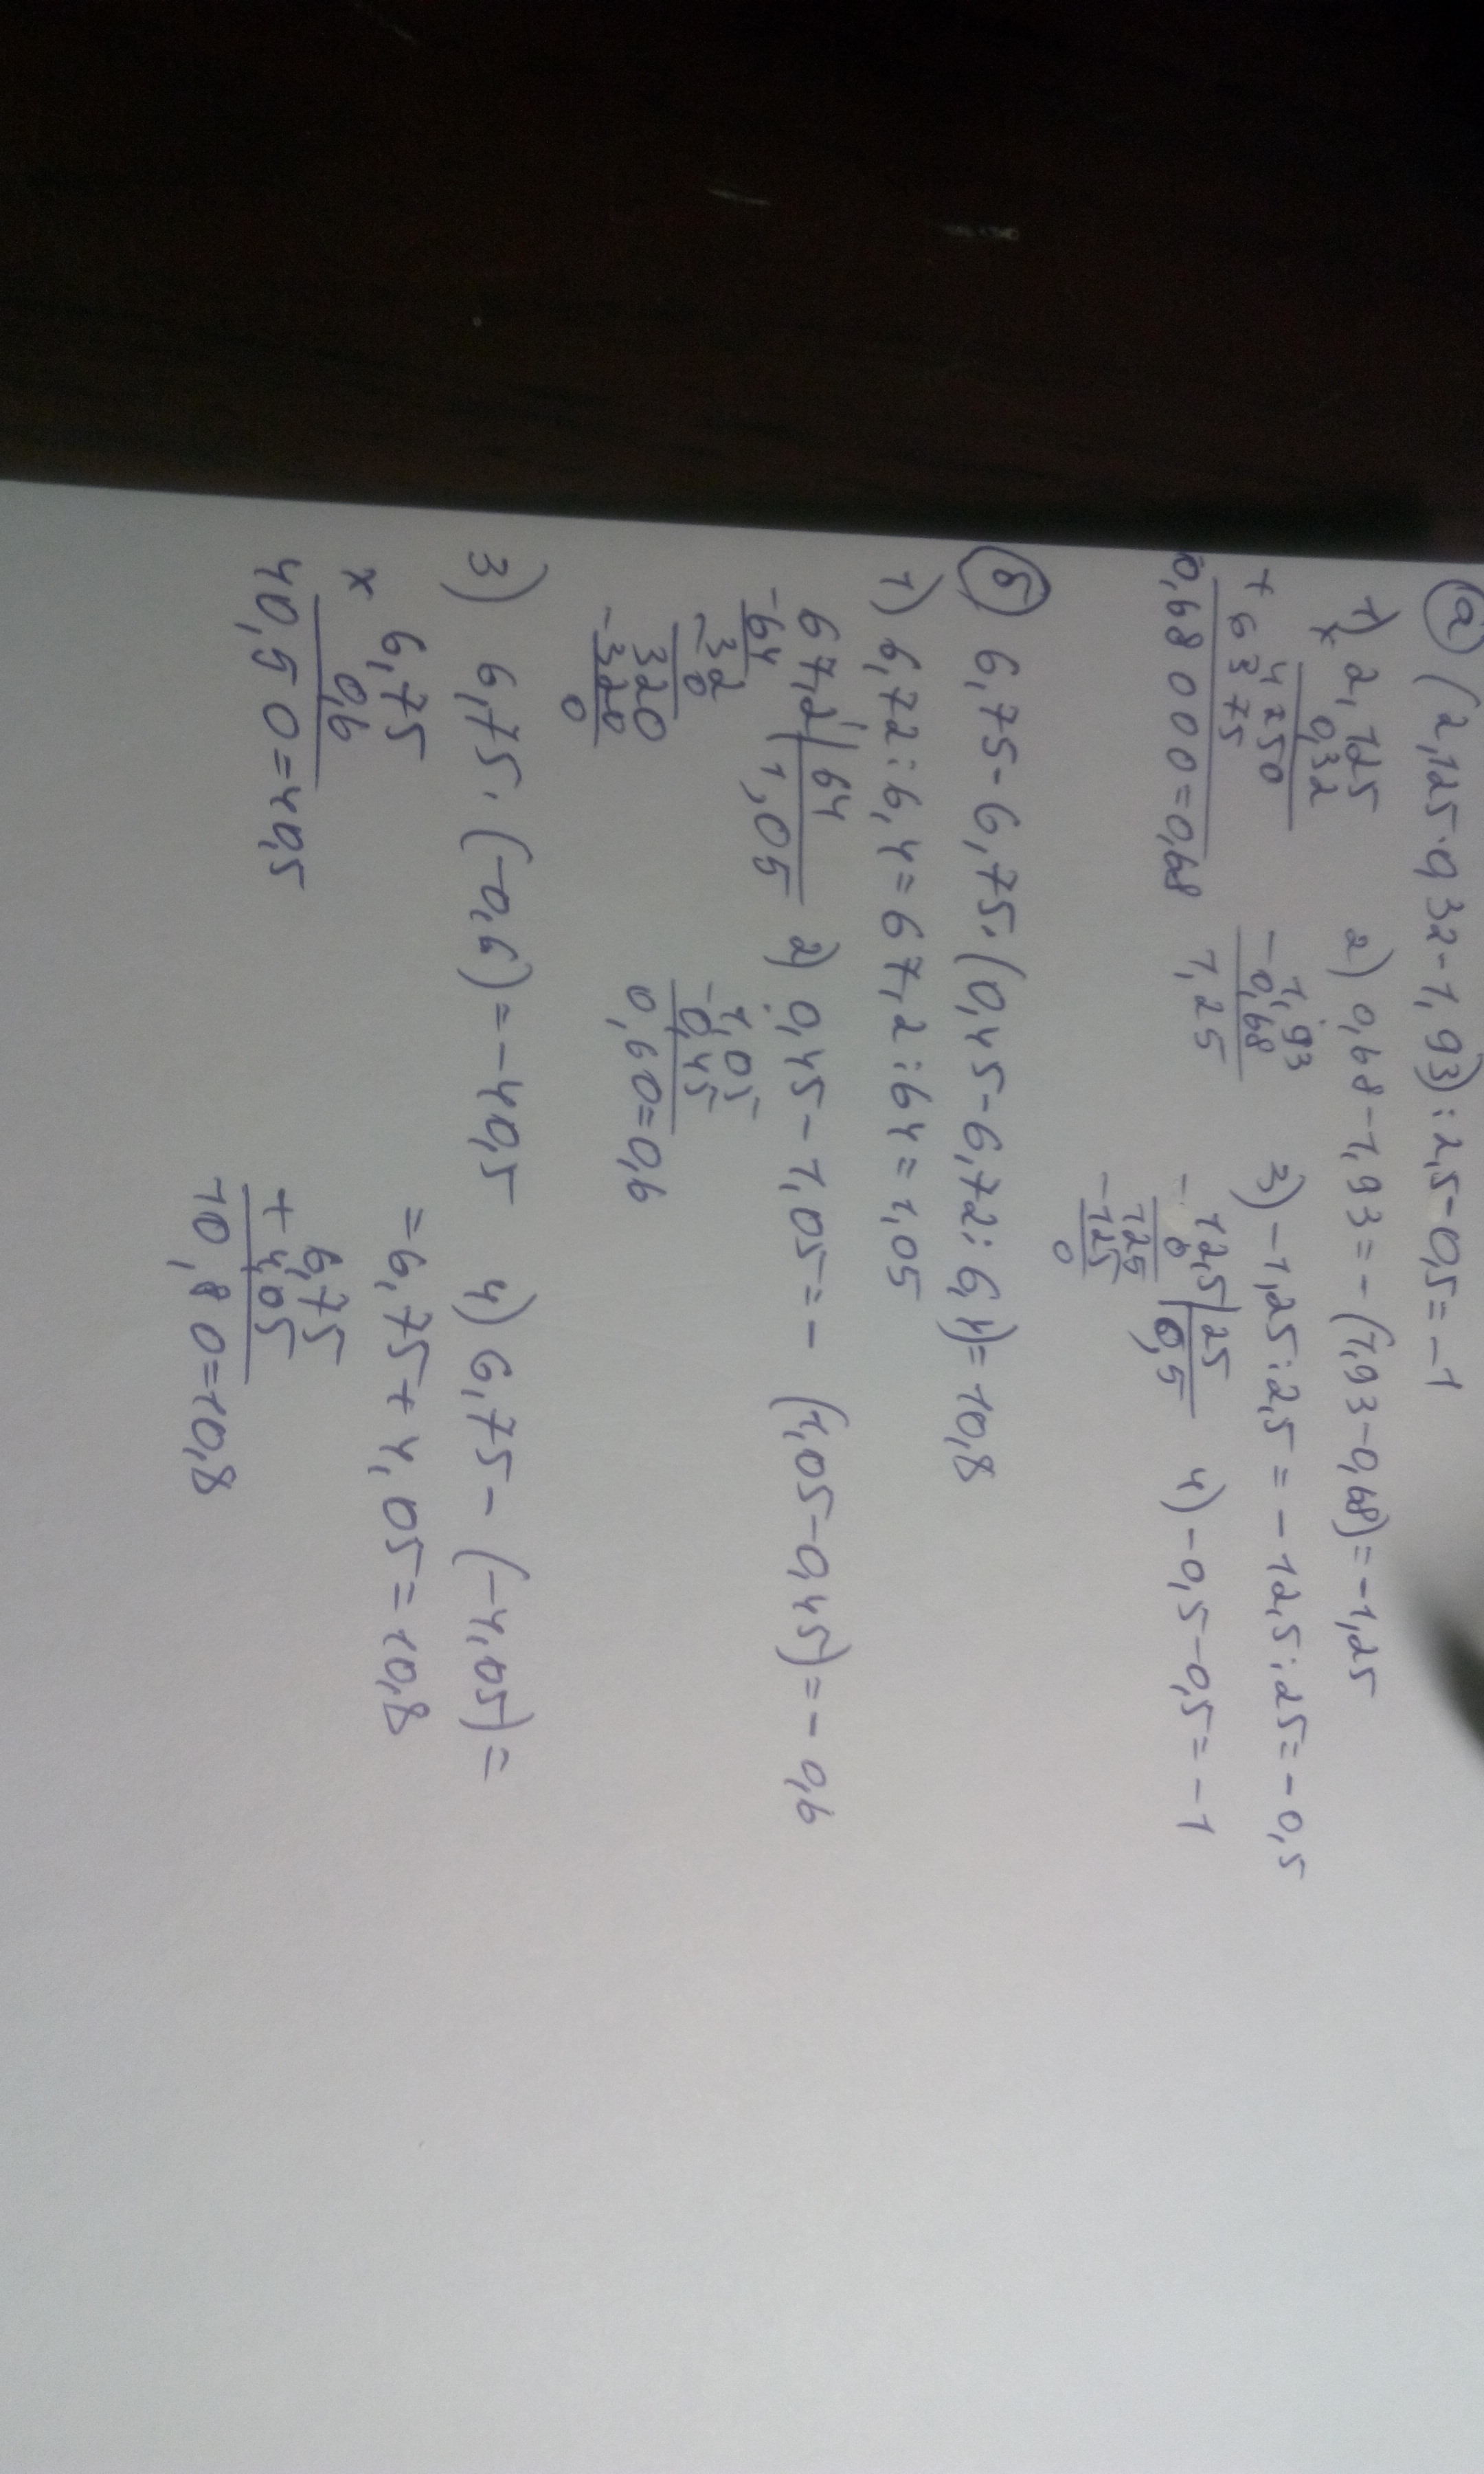 а) (2,125·0,32-1,93):2,5-0,5=-1
1) 2,125
× 0,32
4250
+ 6375
0,68000=0,68
2) 0,68-1,93=-(1,93-0,68)=-1,25
1,93
- 0,68
1,25
3) -1,25:2,5=-12,5:25=-0,5
12,5|25
- 0 |0,5
125
-125
0
4) -0,5-0,5=-1
б) 6,75-6,75·(0,45-6,72:6,4)=10,8
1) 6,72:6,4=67,2:64=1,05
67,2|64
-64 |1,05
32
- 0
320
-320
0
2) 0,45-1,05=-(1,05-0,45)=-0,6
1,05
- 0,45
0,60=0,6
3) 6,75·(-0,6)=-40,5
6,75
× 0,6
40,50=40,5
4) 6,75-(-4,05)=
=6,75+4,05=10,8
6,75
+ 4,05
10,80=10,8